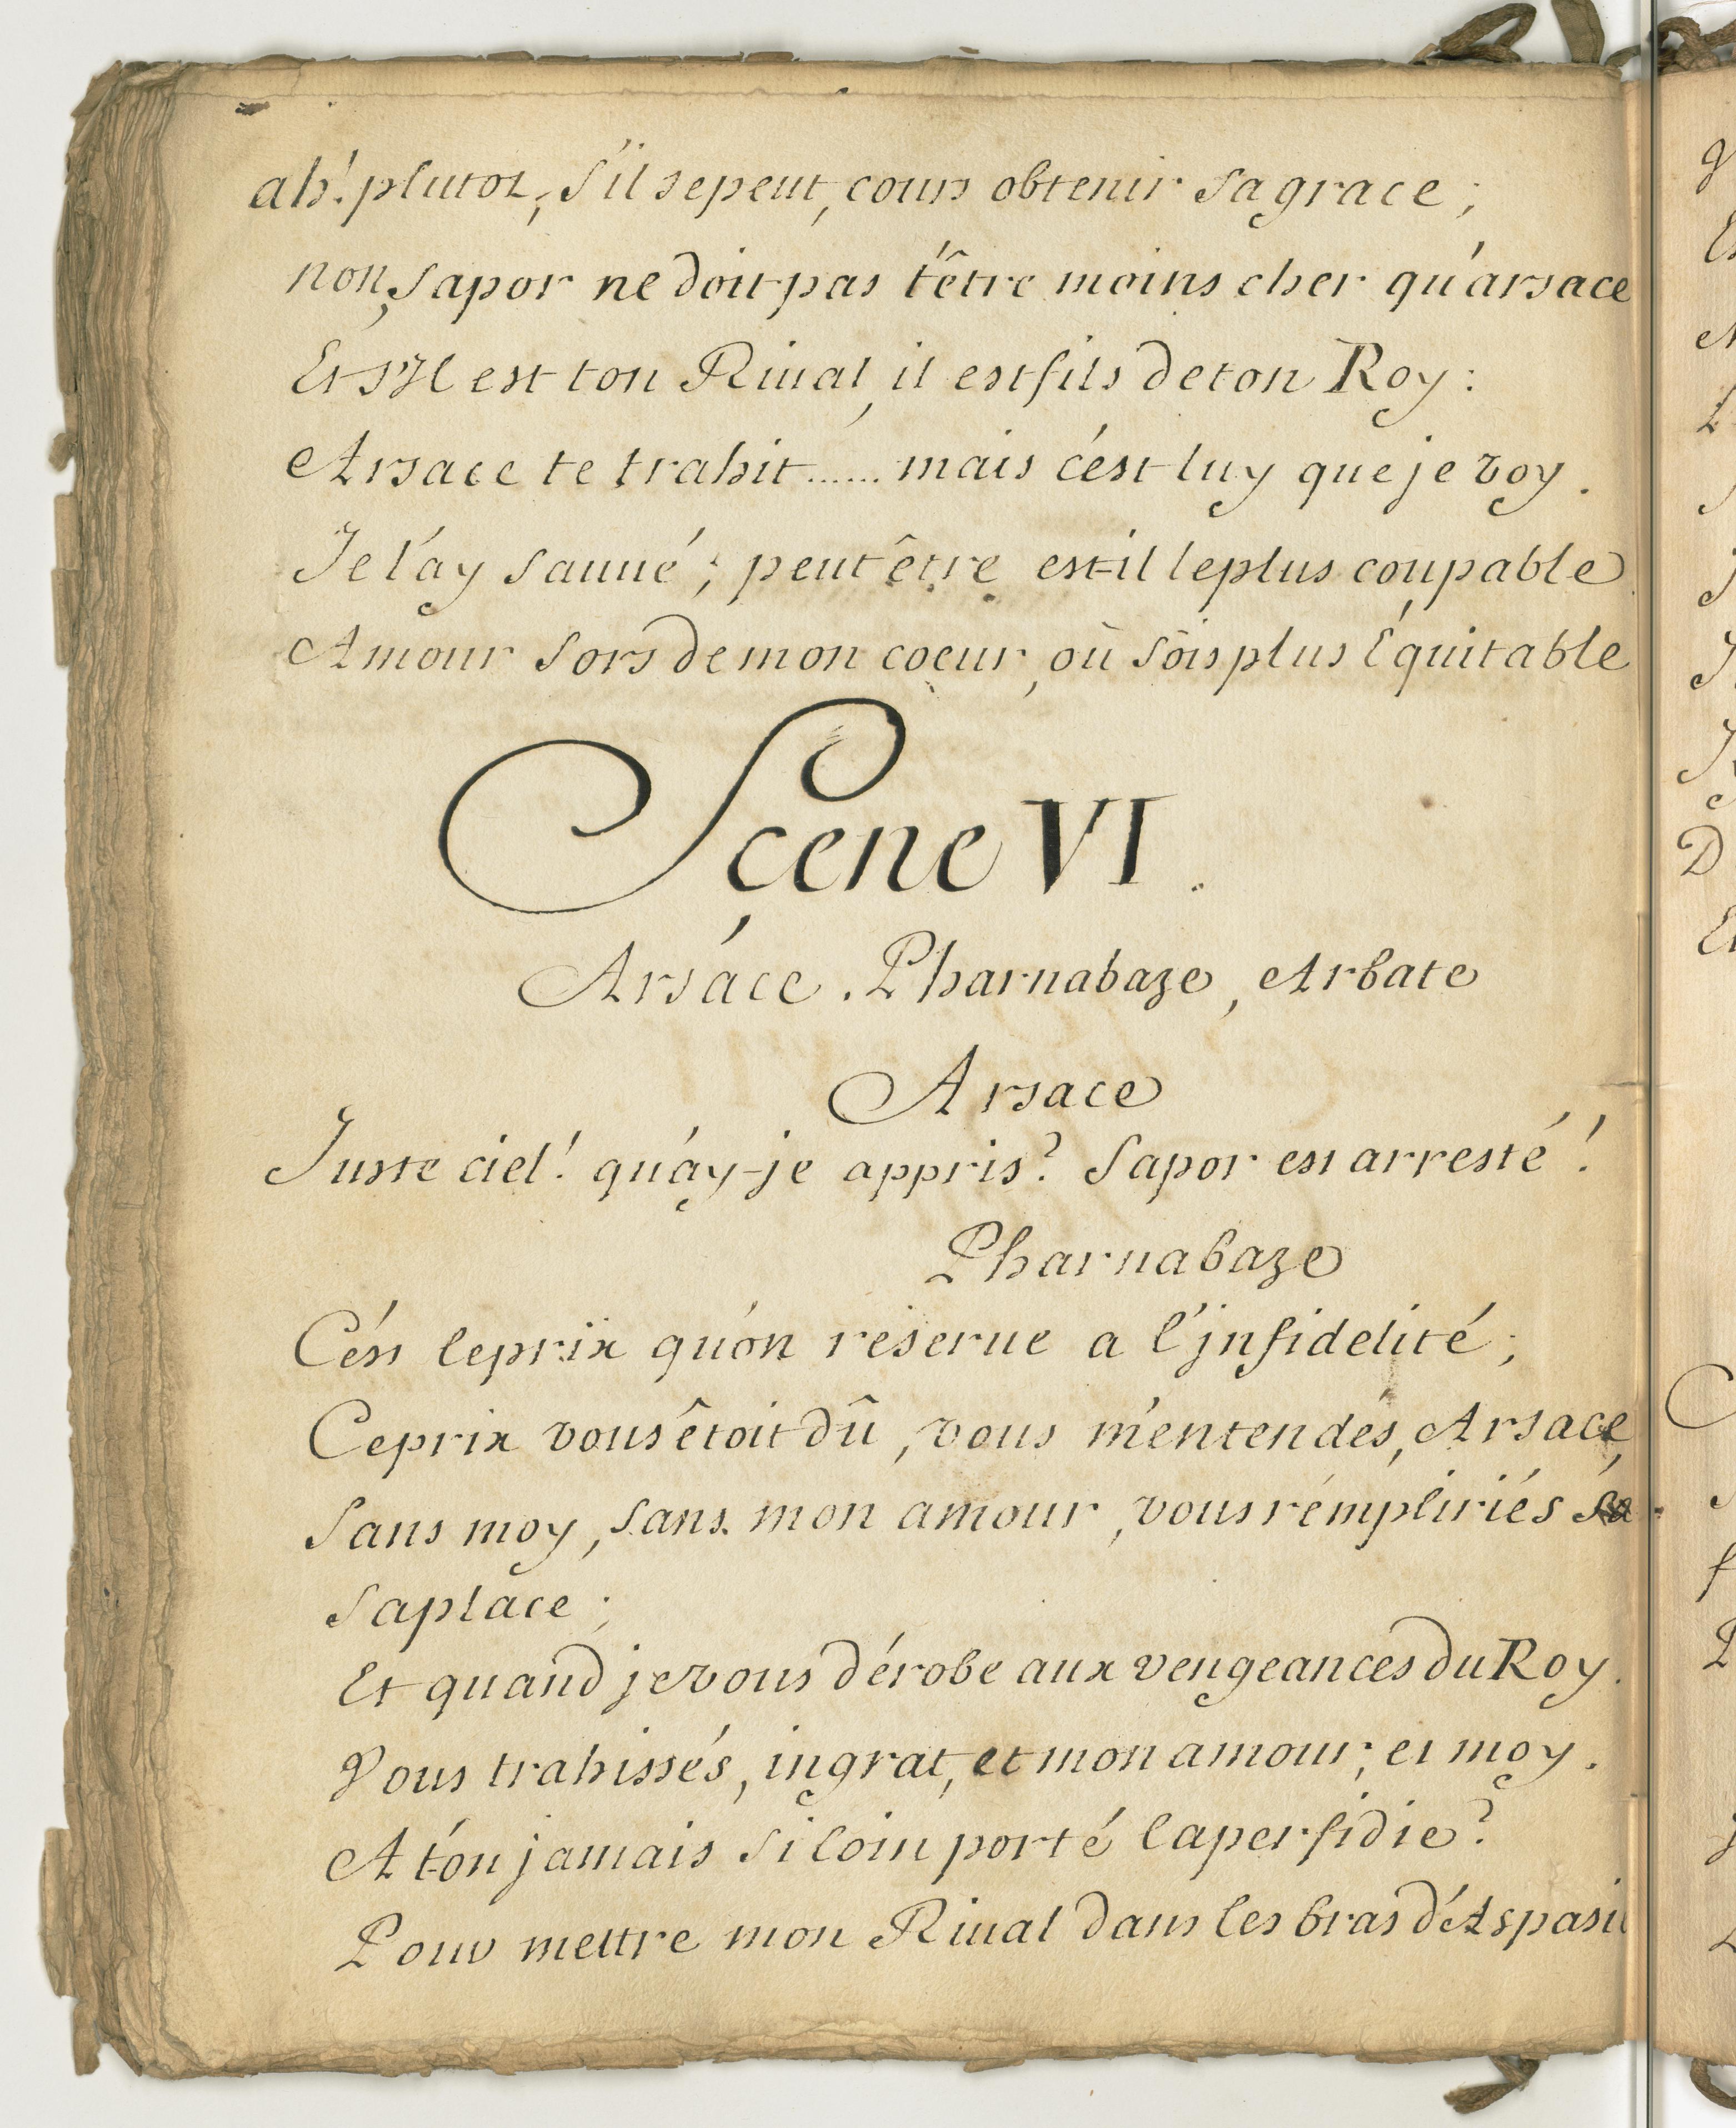 ah! plutot, s'il se peut, cours obtenir sa grace;
non, sapor ne doit pas t'être moins cher qu'arsace
Et s'Il est ton Riual, il est fils de ton Roy:
Arsace te trahit...... mais c'est luy que je voy.
Je l'ay sauué; peut être est-il le plus coupable
Amour sors de mon coeur, où sois plus Équitable
Scene VI.
Arsace. Pharnabaze, Arbate
Arsace
Juste ciel! qu'ay-je appris? Sapor est arresté!
Pharnabaze
C'est le prix qu'on réserue a l'jnfidelité;
Ce prix vous êtoit dû, vous m'entendés, Arsace,
Sans moy, sans mon amour, vous rempliriés sa
sa place;
Et quand je vous dérobe aux vengeances du Roy.
Vous trahissés, ingrat, et mon amour, et moy.
A t'on jamais si loin porté la perfidie?
Pour mettre mon Riual dans les bras d'Aspasie